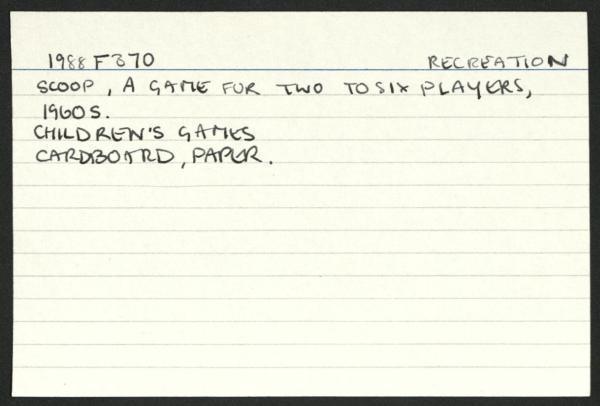 1988 F370 RECREATION
SCOOP, A GAME FOR TWO TO SIX PLAYERS,
1960S.
CHILDREN'S GAMES
CARDBOARD, PAPER.